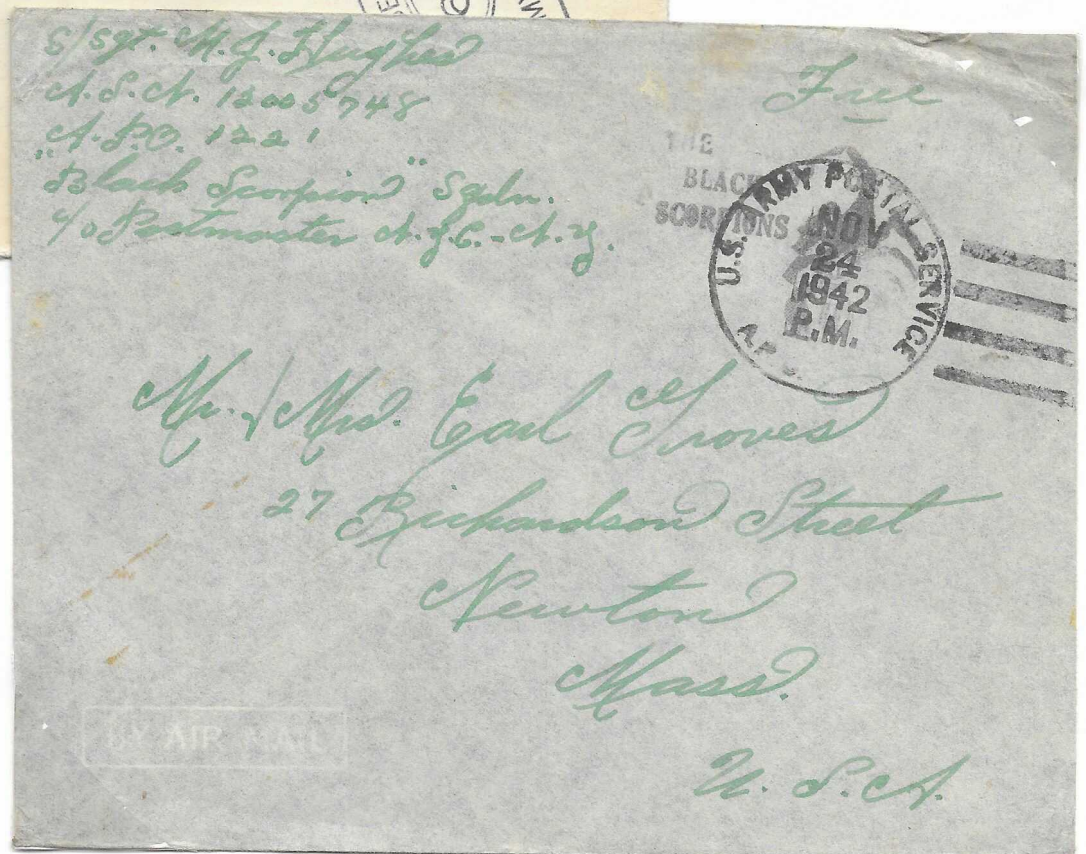 S/Sgt. M. J. Hughes
A.S.N. 12005748
A.P.O. 1221
"Black Scorpion" Sqdn.
c/o Postmaster N.Y.C. - N.Y.
Free
THE
BLACK
SCORPIONS
U.S. ARMY POSTAL SERVICE
NOV
24
1942
P.M.
A.P.
Mr. / Mrs. Earl Groves
27 Richardson Street
Newton
Mass.
U.S.A.
BY AIR MAIL